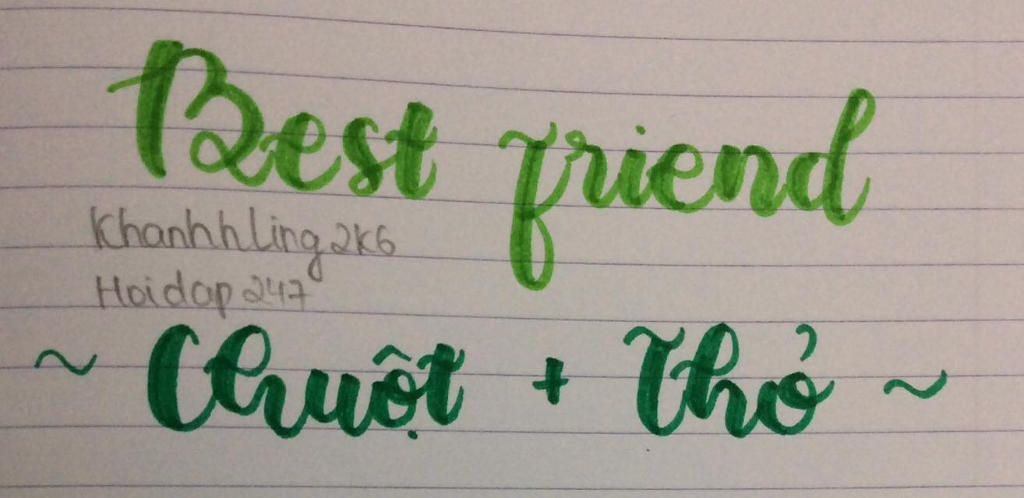 Best friend
Khanhhling2k6
Hoidap247
~ Chuột + Thỏ ~